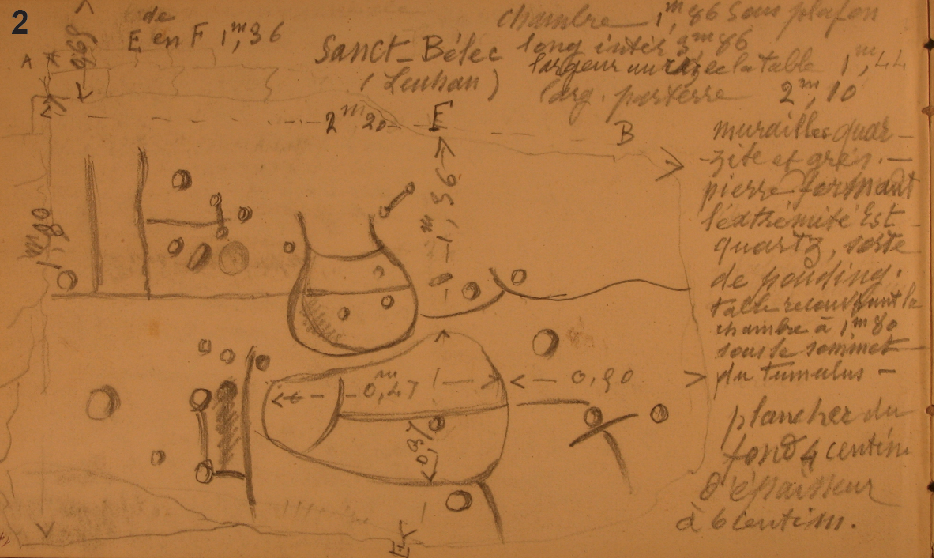 2
de
E en F 1m,36
Sanct-Bélec
(Leuhan)
chambre 1m,86 sous plafon
long intér 3m86
largeur la table 1m,44
larg. parterre 2m,10
2m20
F
B
1m,36
1m,80
0,47
0,90
murailles quar-
-zite et grès. -
pierre formant
l'extrémité Est
quartz, sorte
de pouding.
table recouvrant la
chambre à 1m80
sous le sommet
du tumulus -
plancher du
fond 4 centim
d'épaisseur
à 6 centim.
E